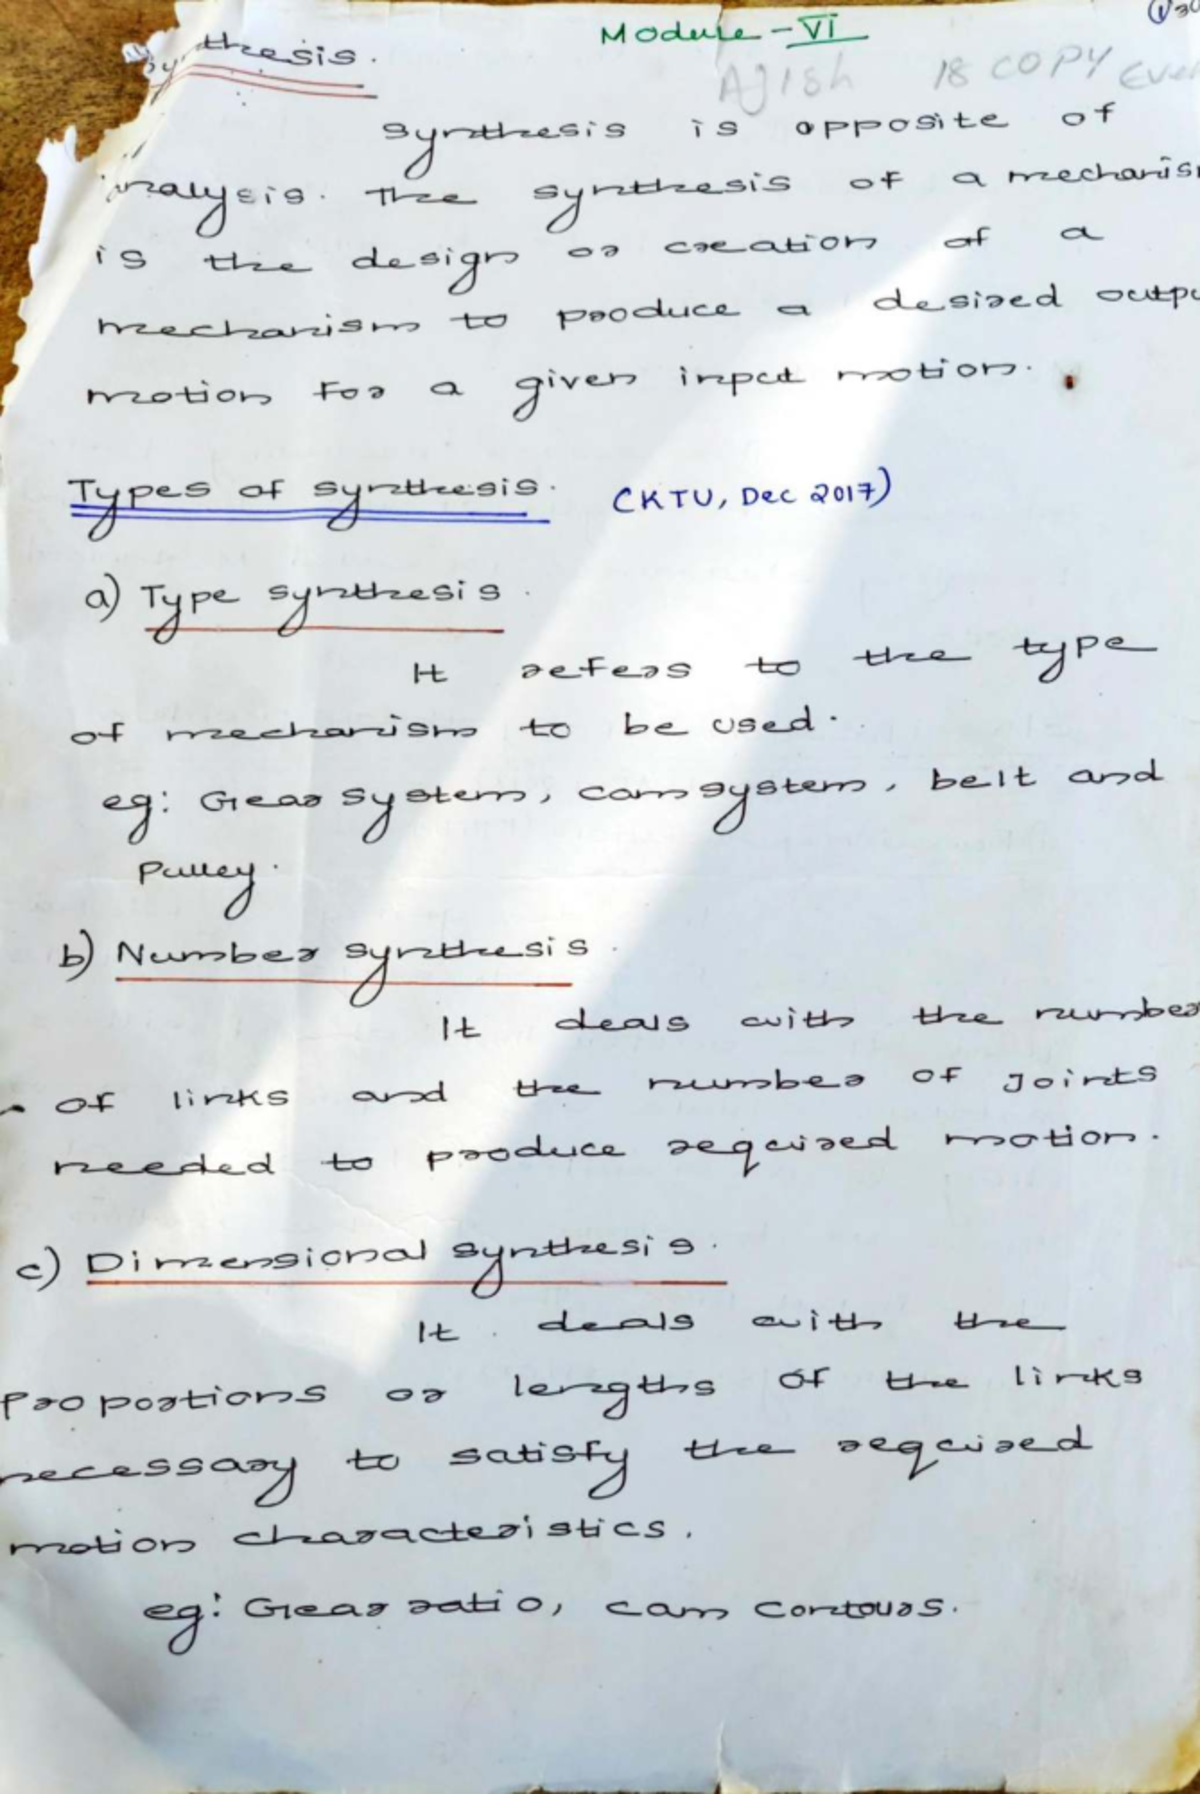 Module - VI
Synthesis.
Ajish 18 COPY
Synthesis is opposite of
analysis. The synthesis of a mechanism
is the design or creation of a
mechanism to produce a desired outpu
motion for a given input motion.
Types of synthesis. (KTU, Dec 2017)
a) Type synthesis.
It refers to the type
of mechanism to be used.
eg: Gear system, cam system, belt and
pulley.
b) Number synthesis.
It deals with the number
of links and the number of joints
needed to produce required motion.
c) Dimensional synthesis.
It deals with the
proportions or lengths of the links
necessary to satisfy the required
motion characteristics.
eg: Gear ratio, cam contours.